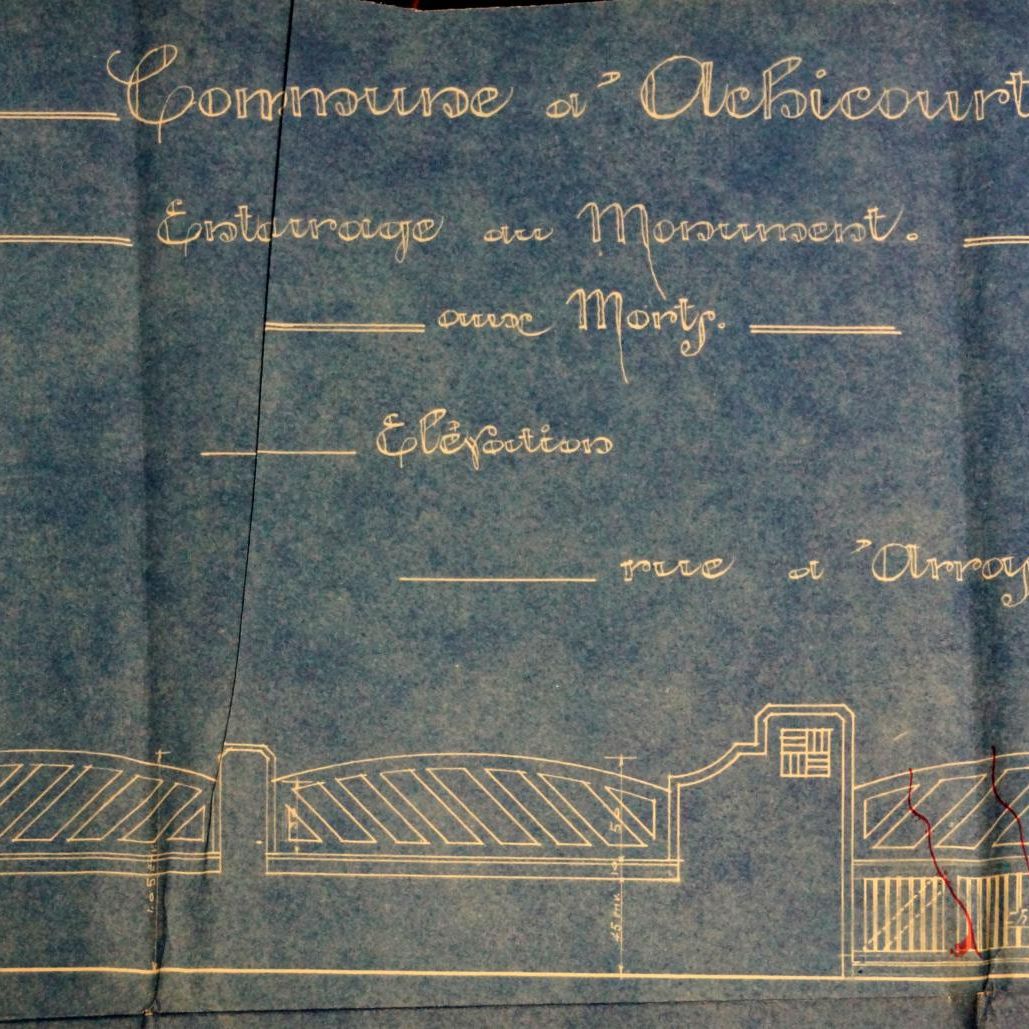 Commune d'Achicourt
Entourage du Monument.
aux Morts.
Elévation
rue d'Arras